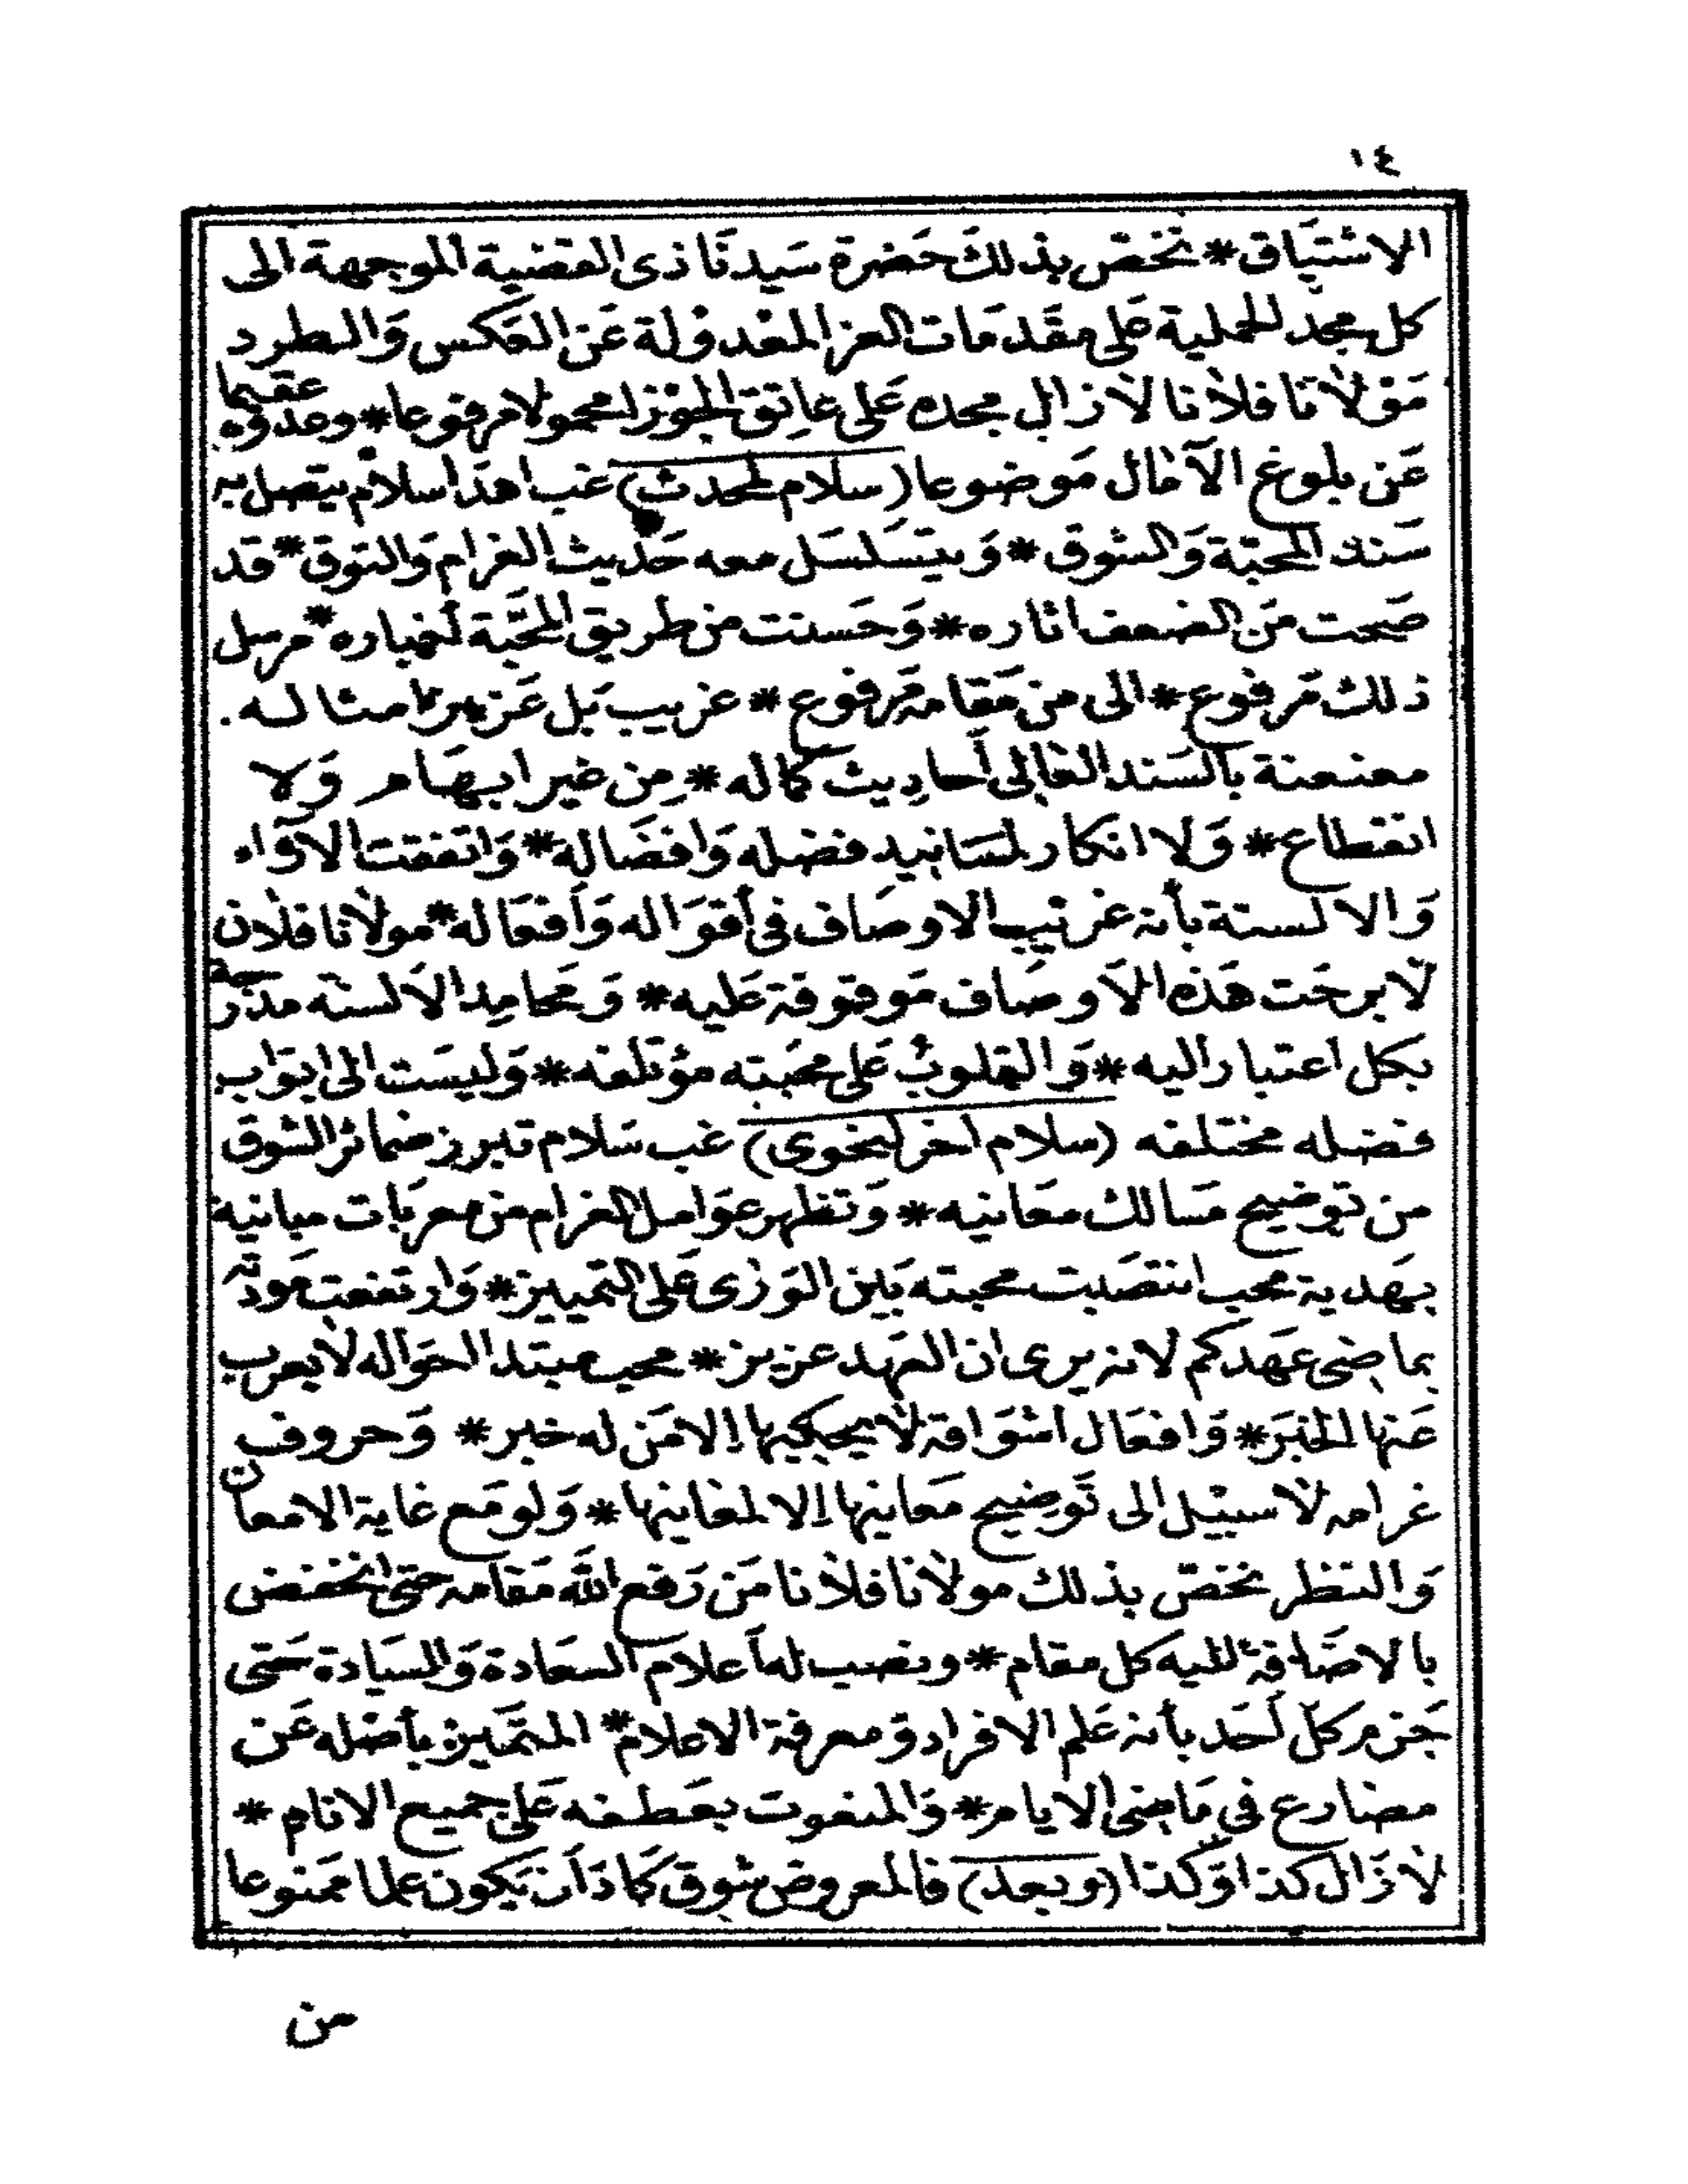 ١٤
الاشتيَاق * نخص بذلك حَضرة سَيدنَا ذى القضية الموجهة الى
كل مجد الحملية عَلى مقَدمَات العز المعْدولة عَن العَكس وَالطرد
مَوْلاَنَا فلاَنا لاَزال مجده عَلى عاتق الجَوْزا محمولا مرفوعا * وعدوه عقيما
عَن بلوغ الآمَال مَوضوعا (سلام لمحدث) غب اهدَا سلام يتصل به
سَند المحبّة وَالشوق * وَيتسَلسَل معه حَديث الغرام وَالتوق * قد
صَحت مَن الضعف اثاره * وَحَسنت من طريق المحَبَّة أخباره * مرسل
ذلك مَرفوع * الى من مَقامه مَرفوع * غريب بَل عَزيز امثاله .
معنعنة بالسَند العَالى أحاديث كماله * مِن غير ابهَام وَلا
انقطاع * وَلا انكار لمسَانيد فضله وَافضَاله * وَاتفقت الاَراء
وَالالسنة بأنه غريب الاوصَاف فى أقوَاله وَأفعَاله * مولاَنا فلاَن
لاَ برحَت هَذه الاَوصَاف مَوقوفة عَليه * وَمحَامِد الاَلسنه مدَرجة
بكل اعتبار اليه * وَالقلوبُ عَلى محَبته مؤتلفه * وَليسَت الى ابوَاب
فضله مختلفه (سلام اخر لنحوى) غب سَلام تبرز ضمائر الشوق
من توضيح مَسالك معَانيه * وَتظهر عَوَامل الغرام من معربَات مبانيه
بهَدية محب انتصَبت محبته بَين الوَرَى عَلى التمييز * وَارتفعت مَودته
بماضى عَهَدكم لانه يرى ان العَهد عزيز * محب مبتدا احَواله لاَ يعرب
عَنها الخبَر * وَافعَال اشوَاقه لاَ يحكيها إلا مَن له خبر * وَحروف
غرامه لاَ سبيْل الى تَوضيح مَعاينها إلا لمعَاينها * وَلو مَع غاية الامعان
وَالنظر نخصّ بذلك مولاَنا فلاَنا مَن رَفع اللّه مَقامه حتى انخفض
بالاضَافة اليه كل مقام * ونصب له أَعلام السعَادة وَالسيَادة حَتى
جَزم كلّ أحَد بأنه عَلم الافراد وَمعرفة الاعلام * المتَميز بأصْله عَن
مضارع فى مَاضى الاَيام * وَالمنعوت بعَطفه عَلى جميع الانام *
لاَزَال كذا وَكذا (وبعد) فالمعروض شوق كَادَ أن يَكون علما مَمنوعا
من